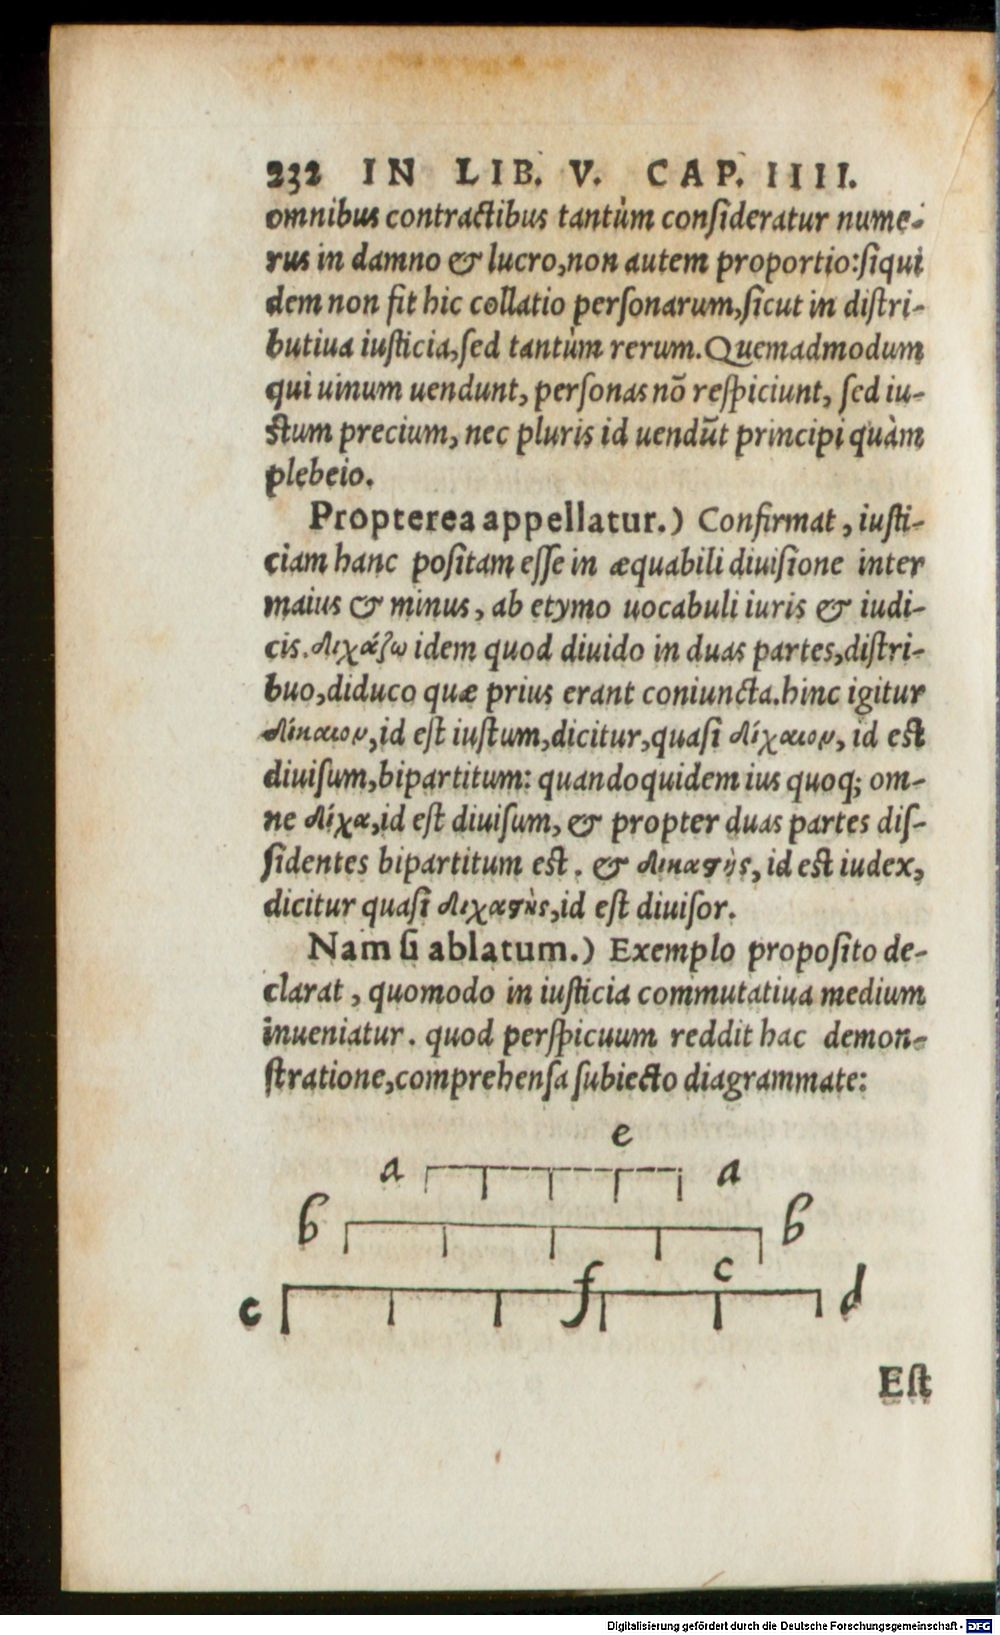 232 IN LIB. V. CAP. IIII.
omnibus contractibus tantùm consideratur nume-
rus in damno & lucro, non autem proportio: siqui
dem non fit hic collatio personarum, sicut in distri-
butiua iusticia, sed tantùm rerum. Quemadmodum
qui uinum uendunt, personas nō respiciunt, sed iu-
stum precium, nec pluris id uendūt principi quàm
plebeio.
Propterea appellatur.) Confirmat, iusti-
ciam hanc positam esse in æquabili diuisione inter
maius & minus, ab etymo uocabuli iuris & iudi-
cis. διχάζω idem quod diuido in duas partes, distri-
buo, diduco quæ prius erant coniuncta. hinc igitur
δίκαιον, id est iustum, dicitur, quasi δίχαιον, id est
diuisum, bipartitum: quandoquidem ius quoq; om-
ne δίχα, id est diuisum, & propter duas partes dis-
sidentes bipartitum est. & δικαστὴς, id est iudex,
dicitur quasi διχαστὴς, id est diuisor.
Nam si ablatum.) Exemplo proposito de-
clarat, quomodo in iusticia commutatiua medium
inueniatur. quod perspicuum reddit hac demon-
stratione, comprehensa subiecto diagrammate:
e
a a
b b
f c
c d
Est
Digitalisierung gefördert durch die Deutsche Forschungsgemeinschaft - DFG